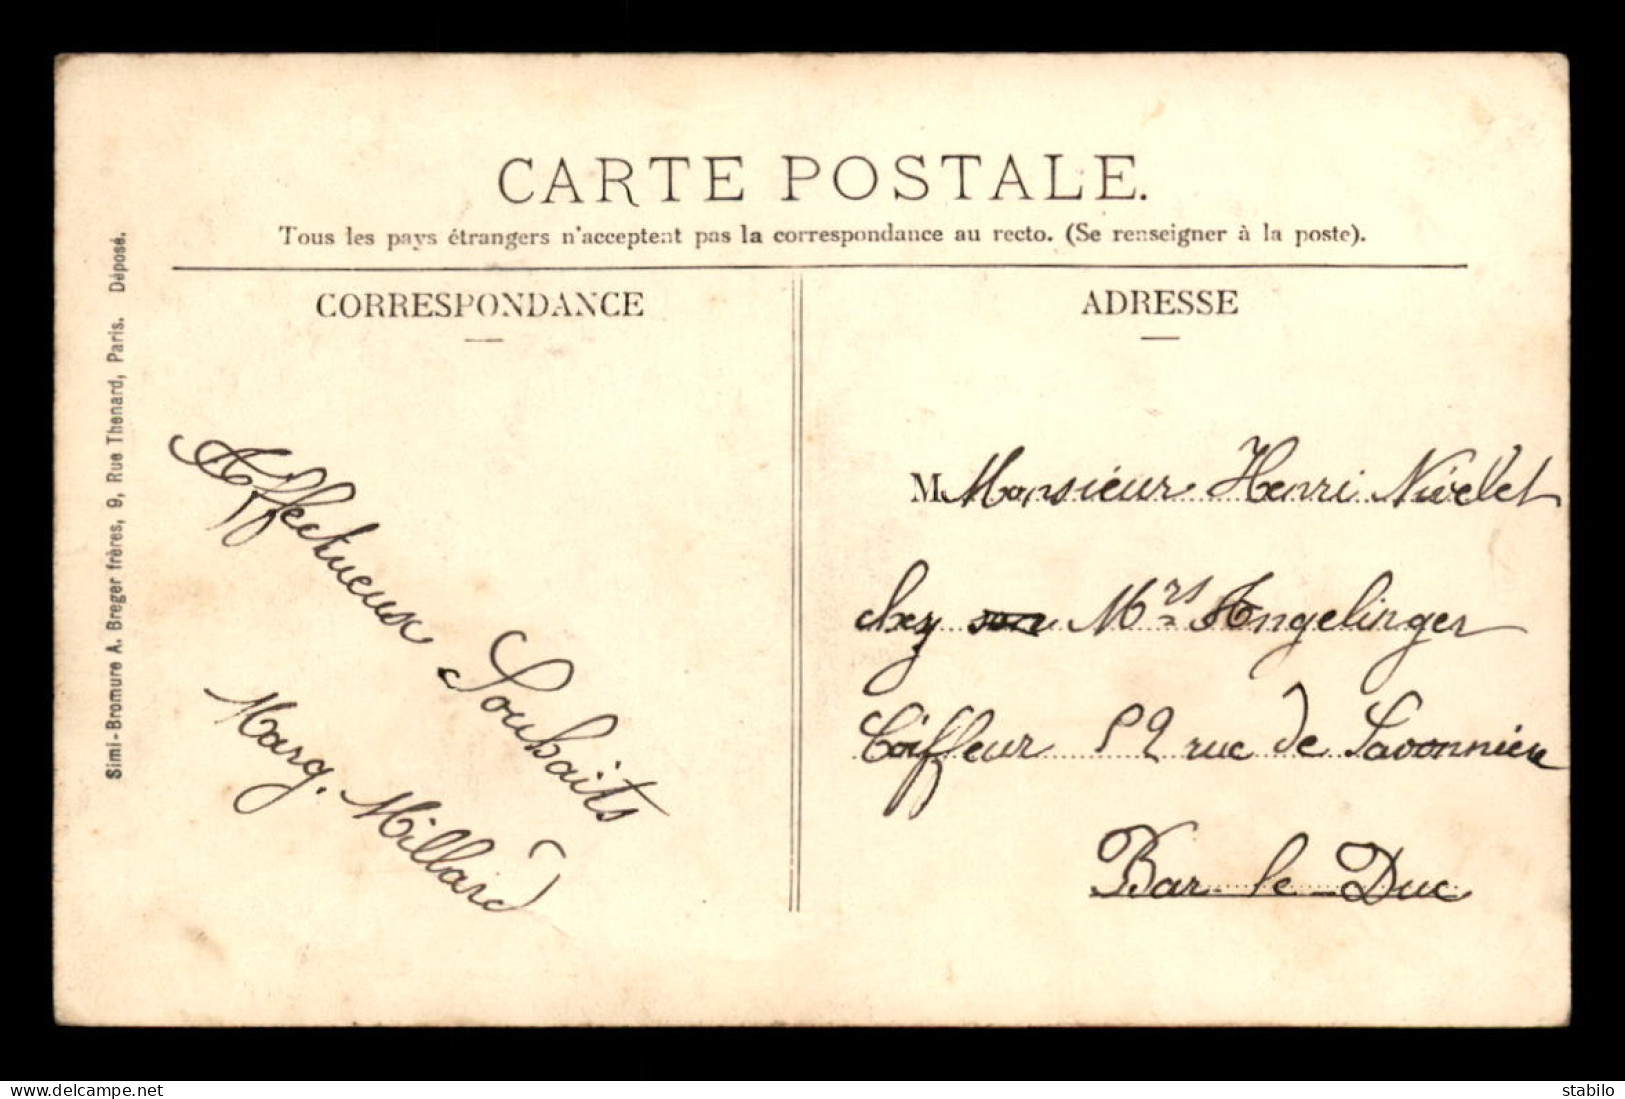 CARTE POSTALE.
Tous les pays étrangers n'acceptent pas la correspondance au recto. (Se renseigner à la poste).
CORRESPONDANCE
ADRESSE
Simi-Bromure A. Breger frères, 9, Rue Thenard, Paris. Déposé.
Affectueux Souhaits
Marg. Millard
M. Monsieur Henri Nivelet
chez son Mrs Angelinger
Coiffeur 52 rue de Savonnière
Bar-le-Duc
www.delcampe.net
stabilo